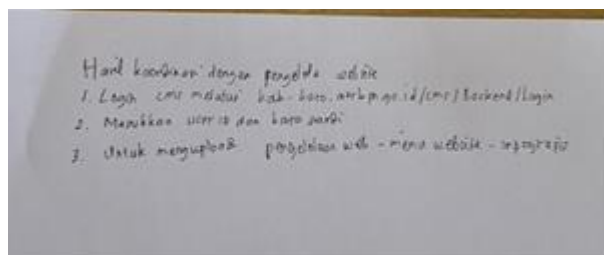 Hasil koordinasi dengan pengelola website
1. Login cms melalui kab-karo.atrbpn.go.id/cms/Backend/Login
2. Masukkan user id dan kata sandi
3. Untuk mengupload pengelolaan web - menu website - infografis